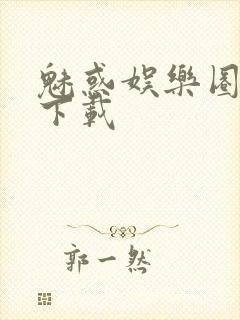 魅惑娱樂圈
下載
郭一然